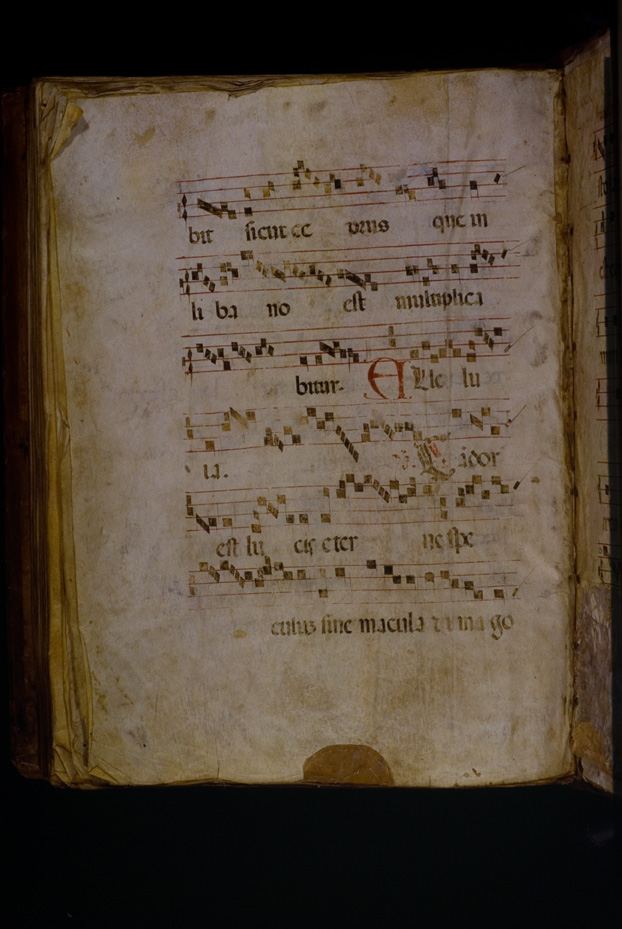 bit sicut ce drus que in
li ba no est multiplica
bitur. Alle lu
ia. ℣. Cādor
est lu cis eter ne spe
culus sine macula et ima go